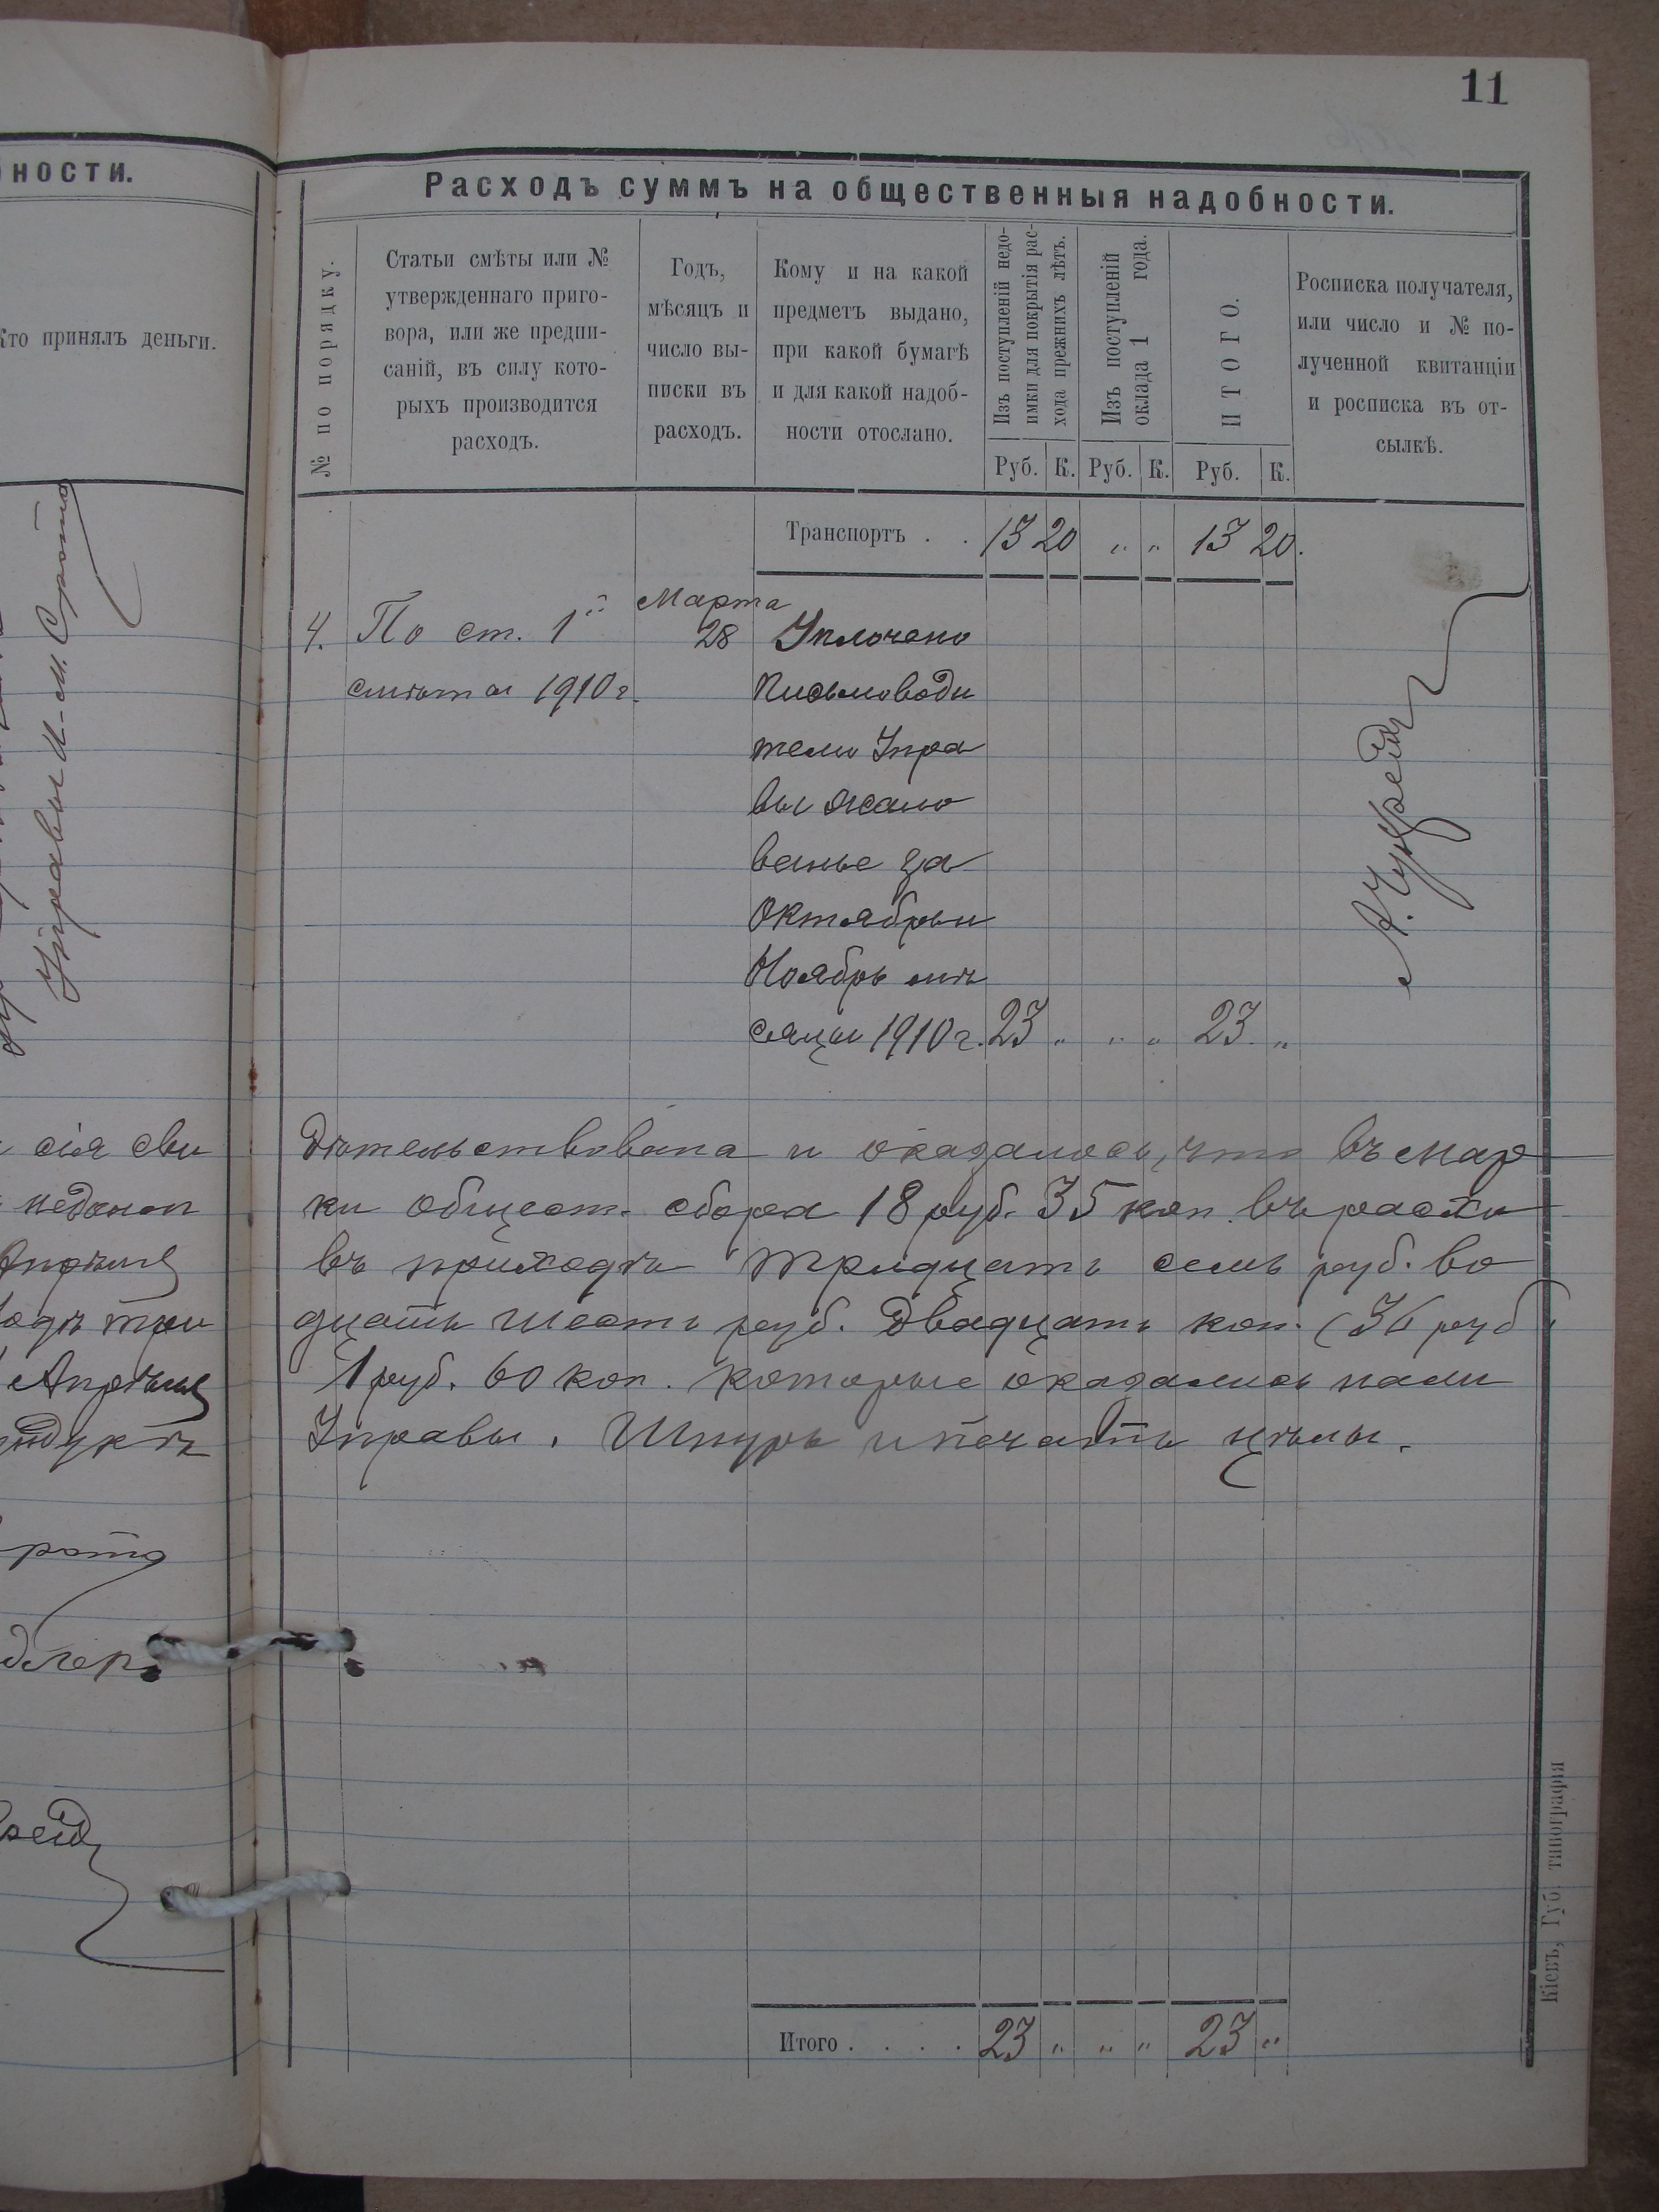 11
бности.
Кто принялъ деньги.
Управы И-М. Сирота
сія сви
Апрѣля
три
Апрѣля
рота
Расходъ суммъ на общественныя надобности.
№ по порядку.
Статьи смѣты или №
утвержденнаго приго-
вора, или же предпи-
саній, въ силу кото-
рыхъ производится
расходъ.
Годъ,
мѣсяцъ и
число вы-
писки въ
расходъ.
Кому и на какой
предметъ выдано,
при какой бумагѣ
и для какой надоб-
ности отослано.
Изъ поступленій недо-
имки для покрытія рас-
хода прежнихъ лѣтъ.
Изъ поступленій
оклада 1 года.
ИТОГО.
Росписка получателя,
или число и № по-
лученной квитанціи
и росписка въ от-
сылкѣ.
Руб. К. Руб. К. Руб. К.
Транспортъ . . 13 20 „ „ 13 20.
Марта
4. По ст. 1й 28 Уплочено
смѣты 1910 г. Письмоводи
телю Упра
вы жало
ванье за
Октябрь и
Ноябрь мѣ
сяцы 1910 г. 23 „ „ „ 23 „
дѣтельствована и оказалось, что въ мар
ки общест. сбора 18 руб. 35 коп. въ расхо
въ приходѣ тридцать семь руб. во
дцать шесть руб. двадцать коп. (36 руб
1 руб. 60 коп. которые оказались нали
Управы. Шнуръ и печать цѣлы.
Итого . . . . 23 „ „ „ 23 „
Кіевъ, Губ. типографія